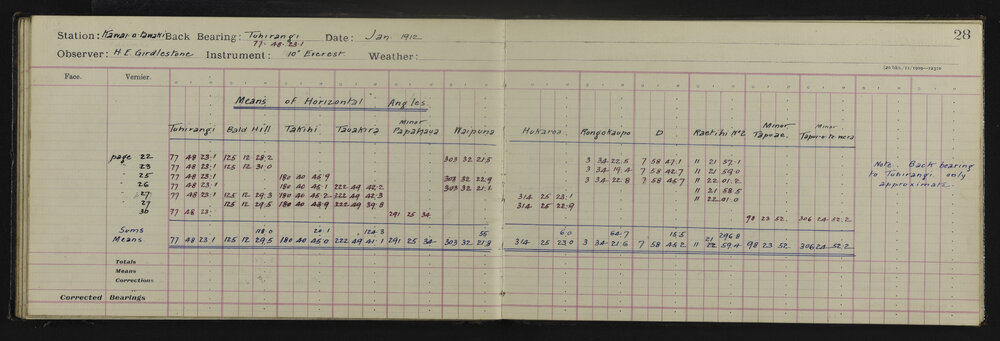 Station: Kawai-o-tawaki Back Bearing: Tuhirangi Date: Jan 1912 28
77 · 48 · 23·1
Observer: H.E. Girdlestone Instrument: 10" Everest Weather:
Face. Vernier.
Means of Horizontal Angles
Tuhirangi Bald Hill Takihi Tauakira Minor Papahaua Waipuna Hukaroa. Rongokaupo D Raetihi No 2 Minor Tapuae. Minor
page 22 77 48 23·1 125 12 28·2 303 32 21·5 3 34 22·5 7 58 47·1 11 21 57·1
" 23 77 48 23·1 125 12 31·0 3 34 19·4 7 58 42·7 11 21 59·0
" 25 77 48 23·1 180 40 45·9 303 32 22·9 3 34 22·8 7 58 45·7 11 22 01·2
" 26 77 48 23·1 180 40 45·1 222 49 42·2 303 32 21·1 11 21 58·5
" 27 77 48 23·1 125 12 29·3 180 40 45·2 222 49 42·3 314 25 23·1 11 22 01·0
27 125 12 29·5 180 40 43·9 222 49 39·8 314 25 22·9
30 77 48 23· 291 25 34 98 23 52 306 24 52·2
Note. Back bearing to Tuhirangi only approximate
Sums 118·0 20·1 124·3 55 6·0 64·7 15·5 296·8
Means 77 48 23·1 125 12 29·5 180 40 45·0 222 49 41·1 291 25 34 303 32 21·8 314 25 23·0 3 34 21·6 7 58 45·2 11 21 59·4 98 23 52 306 24 52·2
Totals
Means
Corrections
Corrected Bearings